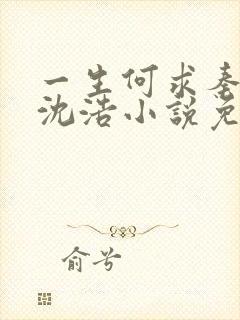 一生何求秦
沈浩小說免
俞兮